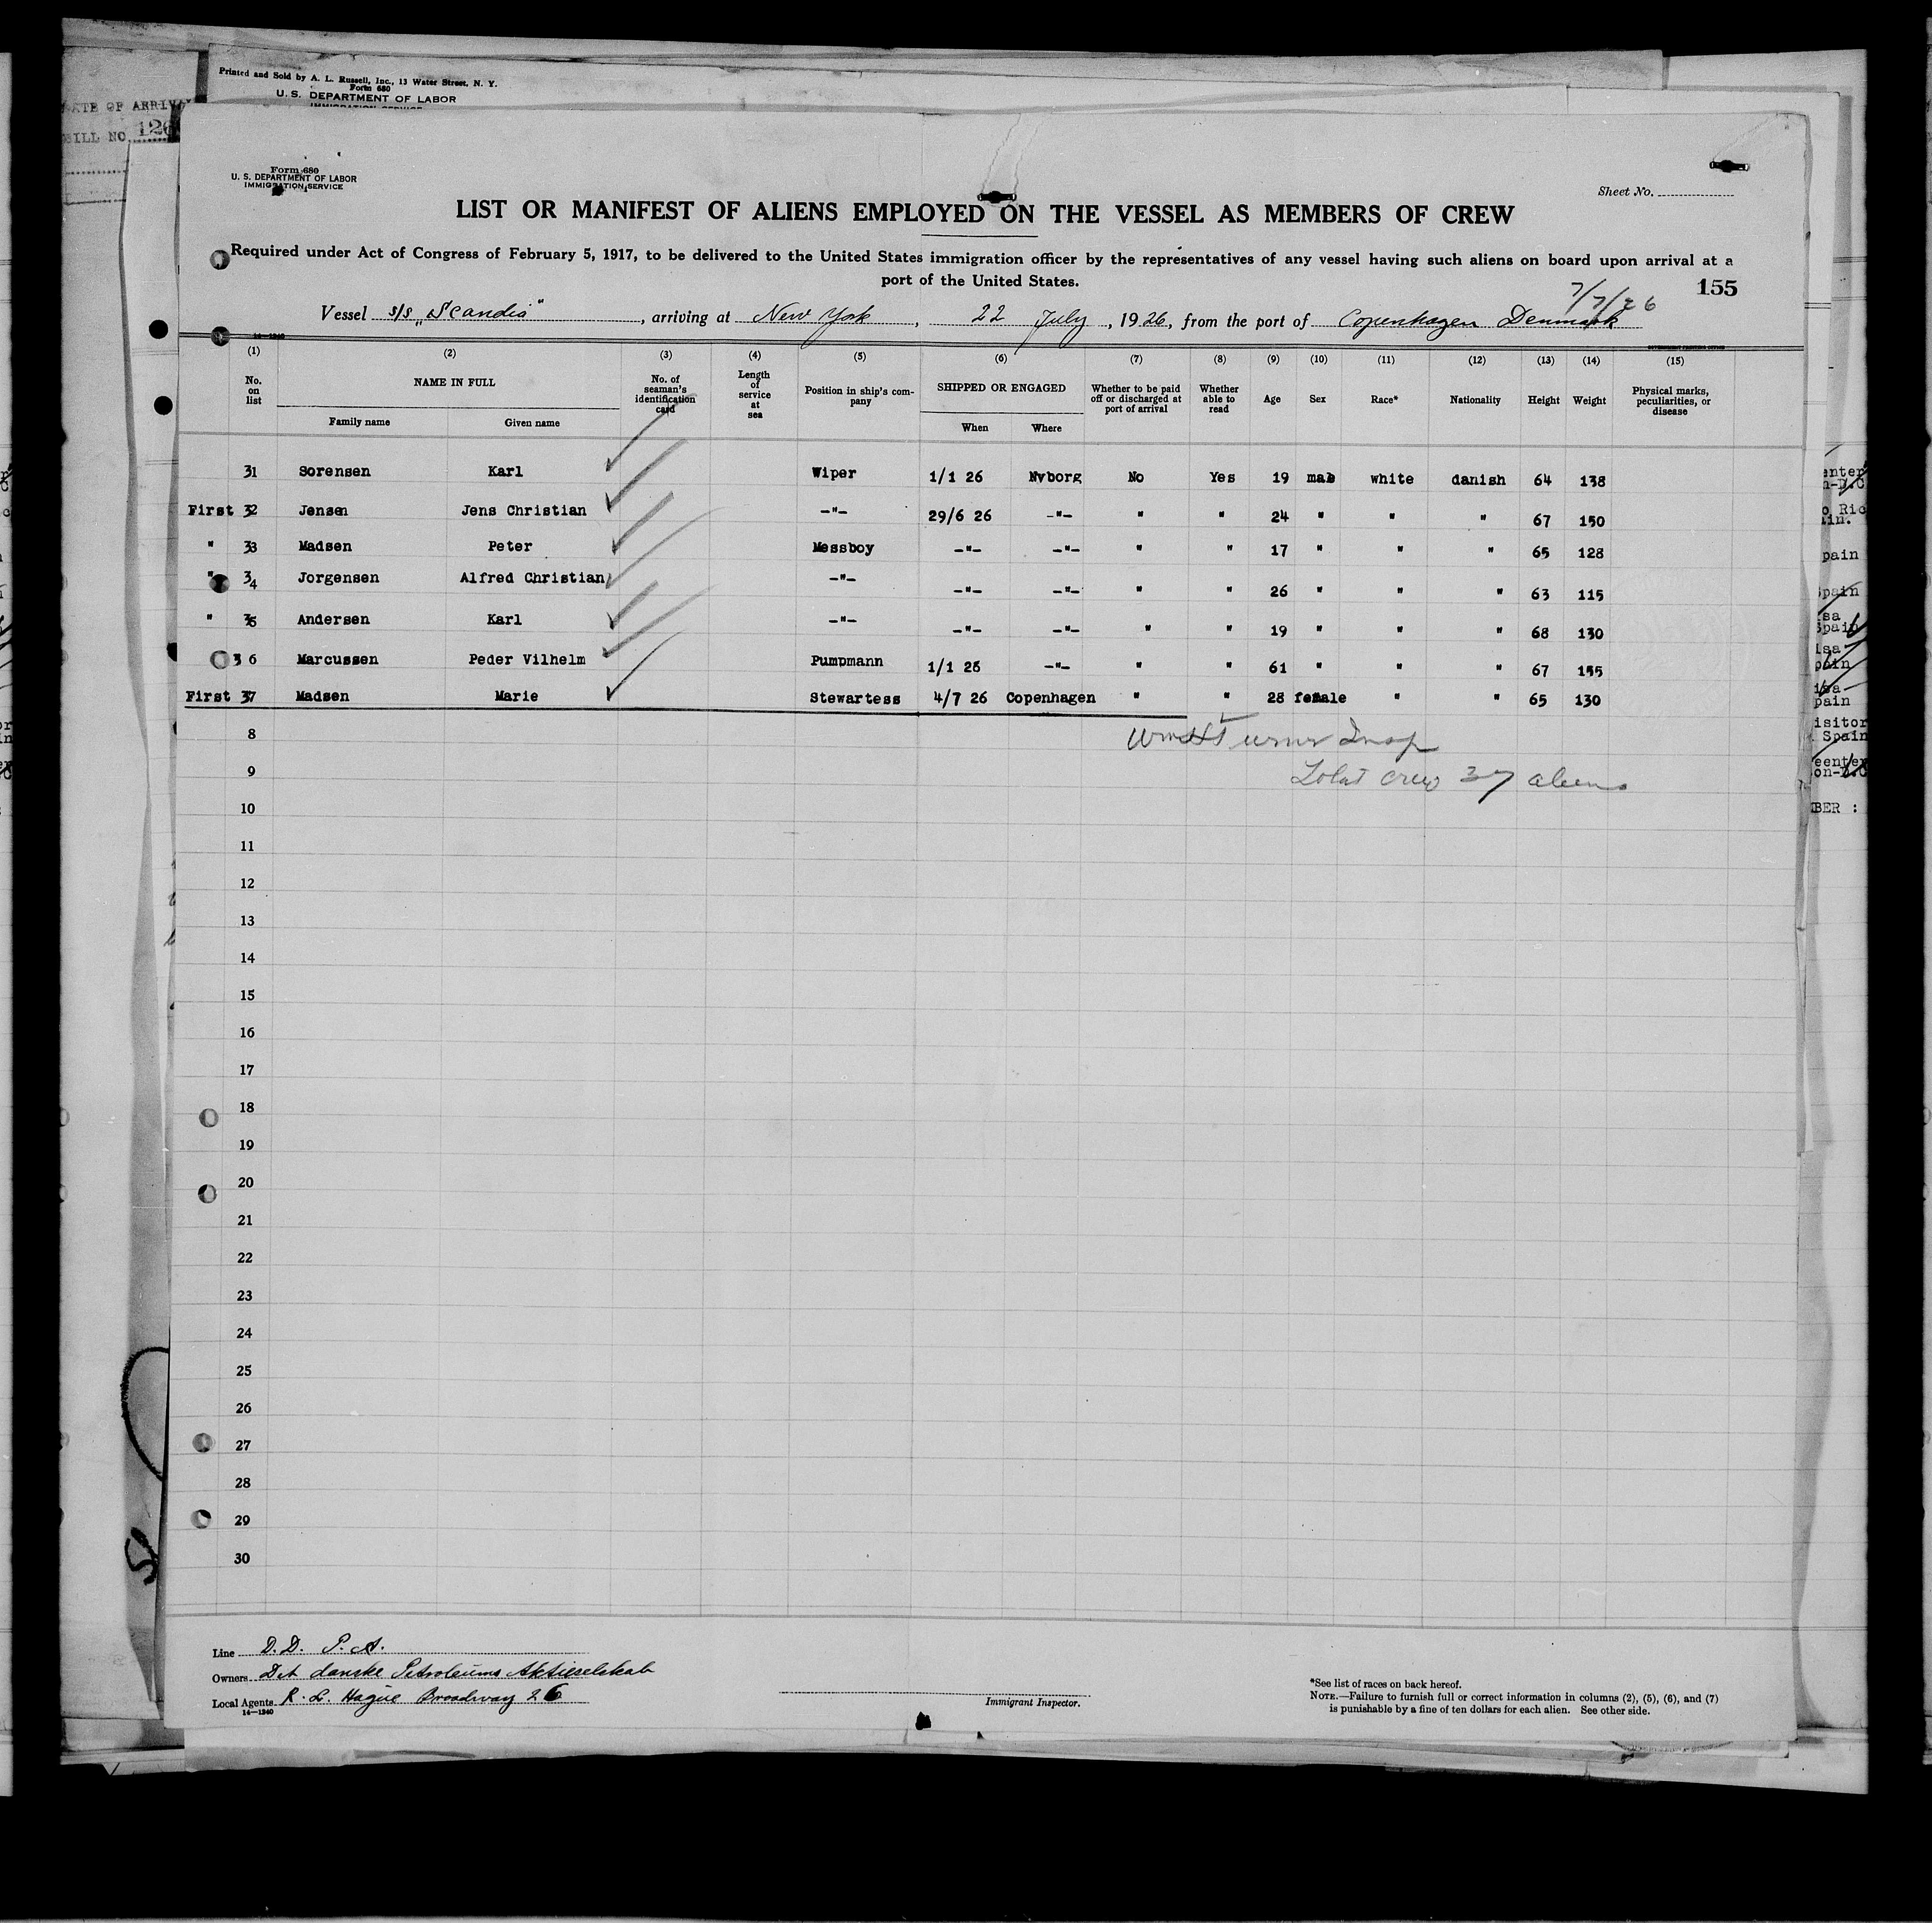 Printed and Sold by A. L. Russell, Inc., 13 Water Street, N. Y.
Form 680
U. S. DEPARTMENT OF LABOR
IMMIGRATION SERVICE
DATE OF ARRIV
BILL NO. 126
Form 680
U. S. DEPARTMENT OF LABOR
IMMIGRATION SERVICE
Sheet No.
LIST OR MANIFEST OF ALIENS EMPLOYED ON THE VESSEL AS MEMBERS OF CREW
Required under Act of Congress of February 5, 1917, to be delivered to the United States immigration officer by the representatives of any vessel having such aliens on board upon arrival at a
port of the United States.
155
7/7/26
Vessel s/s "Scandia", arriving at New York, 22 July, 1926, from the port of Copenhagen Denmark
14-1240
(1) (2) (3) (4) (5) (6) (7) (8) (9) (10) (11) (12) (13) (14) (15)
No. on list NAME IN FULL No. of seaman's identification card Length of service at sea Position in ship's company SHIPPED OR ENGAGED Whether to be paid off or discharged at port of arrival Whether able to read Age Sex Race* Nationality Height Weight Physical marks, peculiarities, or disease
Family name Given name When Where
31 Sorensen Karl Wiper 1/1 26 Nyborg No Yes 19 male white danish 64 138
First 32 Jensen Jens Christian -"- 29/6 26 -"- " " 24 " " " 67 150
" 33 Madsen Peter Messboy -"- -"- " " 17 " " " 65 128
" 34 Jorgensen Alfred Christian -"- -"- -"- " " 26 " " " 63 115
" 35 Andersen Karl -"- -"- -"- " " 19 " " " 68 130
36 Marcussen Peder Vilhelm Pumpmann 1/1 26 -"- " " 61 " " " 67 155
First 37 Madsen Marie Stewartess 4/7 26 Copenhagen " " 28 female " " 65 130
8 Wm H Turner Insp
9 Total crew 37 aliens
10
11
12
13
14
15
16
17
18
19
20
21
22
23
24
25
26
27
28
29
30
Line D. D. P. A.
Owners Det danske Petroleums Aktieselskab
Local Agents R. L. Hague Broadway 26
14-1240
Immigrant Inspector.
*See list of races on back hereof.
NOTE.—Failure to furnish full or correct information in columns (2), (5), (6), and (7)
is punishable by a fine of ten dollars for each alien. See other side.